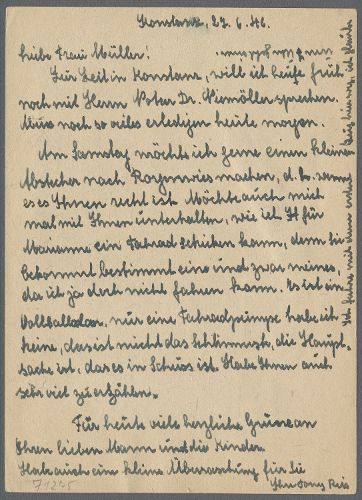 Konstanz, 27. 6. 46.
Liebe Frau Müller!
Zur Zeit in Konstanz, will ich heute früh
noch mit Herrn Notar Dr. Niemöller sprechen.
Muss noch so vieles erledigen heute morgen.
Am Samstag möchte ich gerne einen kleinen
Abstecher nach machen, d. h. wenn
es Ihnen recht ist. Möchte auch mich
mal mit Ihnen unterhalten, wie ich Ihr für
Marianne ein Fahrad schicken kann, denn Sie
bekommt bestimmt eine und zwar meines,
da ich ja doch nicht fahren kann. Es ist ein
nur eine Fahradpumpe habe ich
keine, das ist nicht das Schlimmste, die Haupt-
sache ist, das es in Schuss ist. Habe Ihnen auch
sehr viel zu erzählen.
Für heute viele herzliche Grüsse an
Ihren lieben Mann und die Kinder.
Habe auch eine kleine Überraschung für Sie
71225